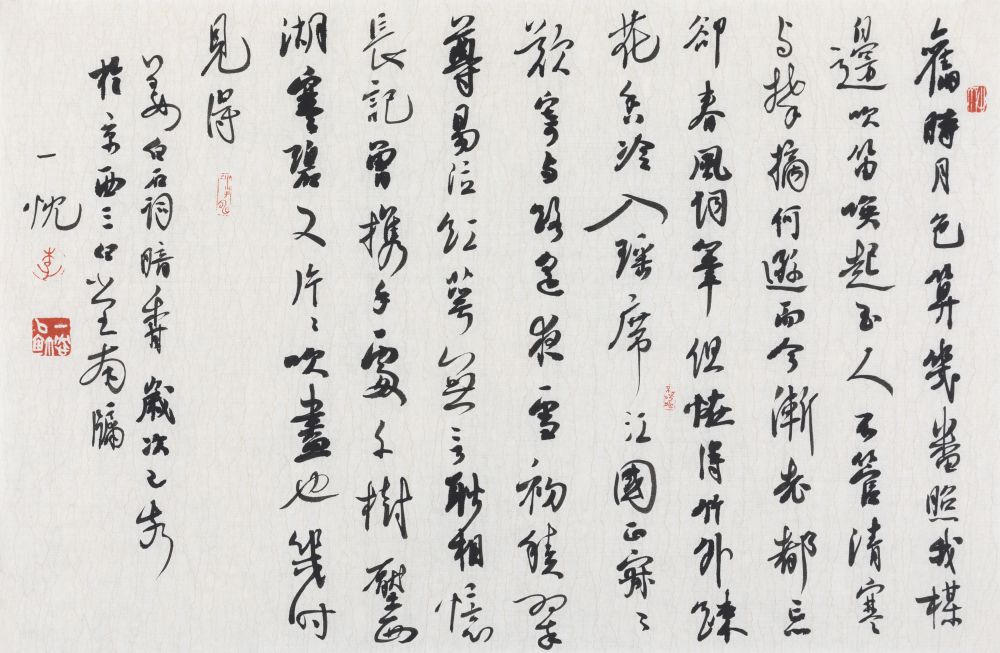 舊時月色算幾番照我楳
邊吹笛喚起玉人不管清寒
与攀摘何遜而今漸老都忘
卻春風詞筆但恠得竹外疎
花香冷入瑤席江國正寂〻
歎寄与路遙夜雪初積翠
尊易泣紅萼無言耿相憶
長記曾攜手處千樹壓西
湖寒碧又片〻吹盡也幾时
見得
姜白石詞暗香歲次己亥
於京西三堂南牖
一忱
李